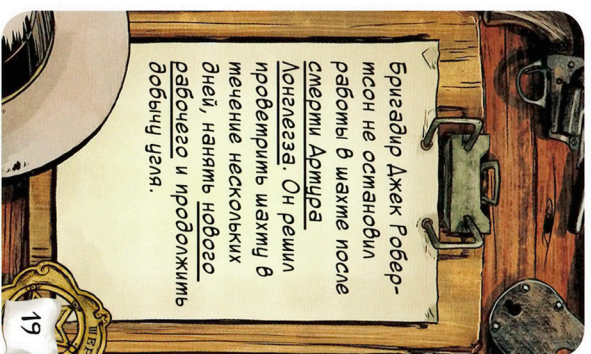 Бригадир Джек Робер-
тсон не остановил
работы в шахте после
смерти Артура
Лонглегза. Он решил
проветрить шахту в
течение нескольких
дней, нанять нового
рабочего и продолжить
добычу угля.
19